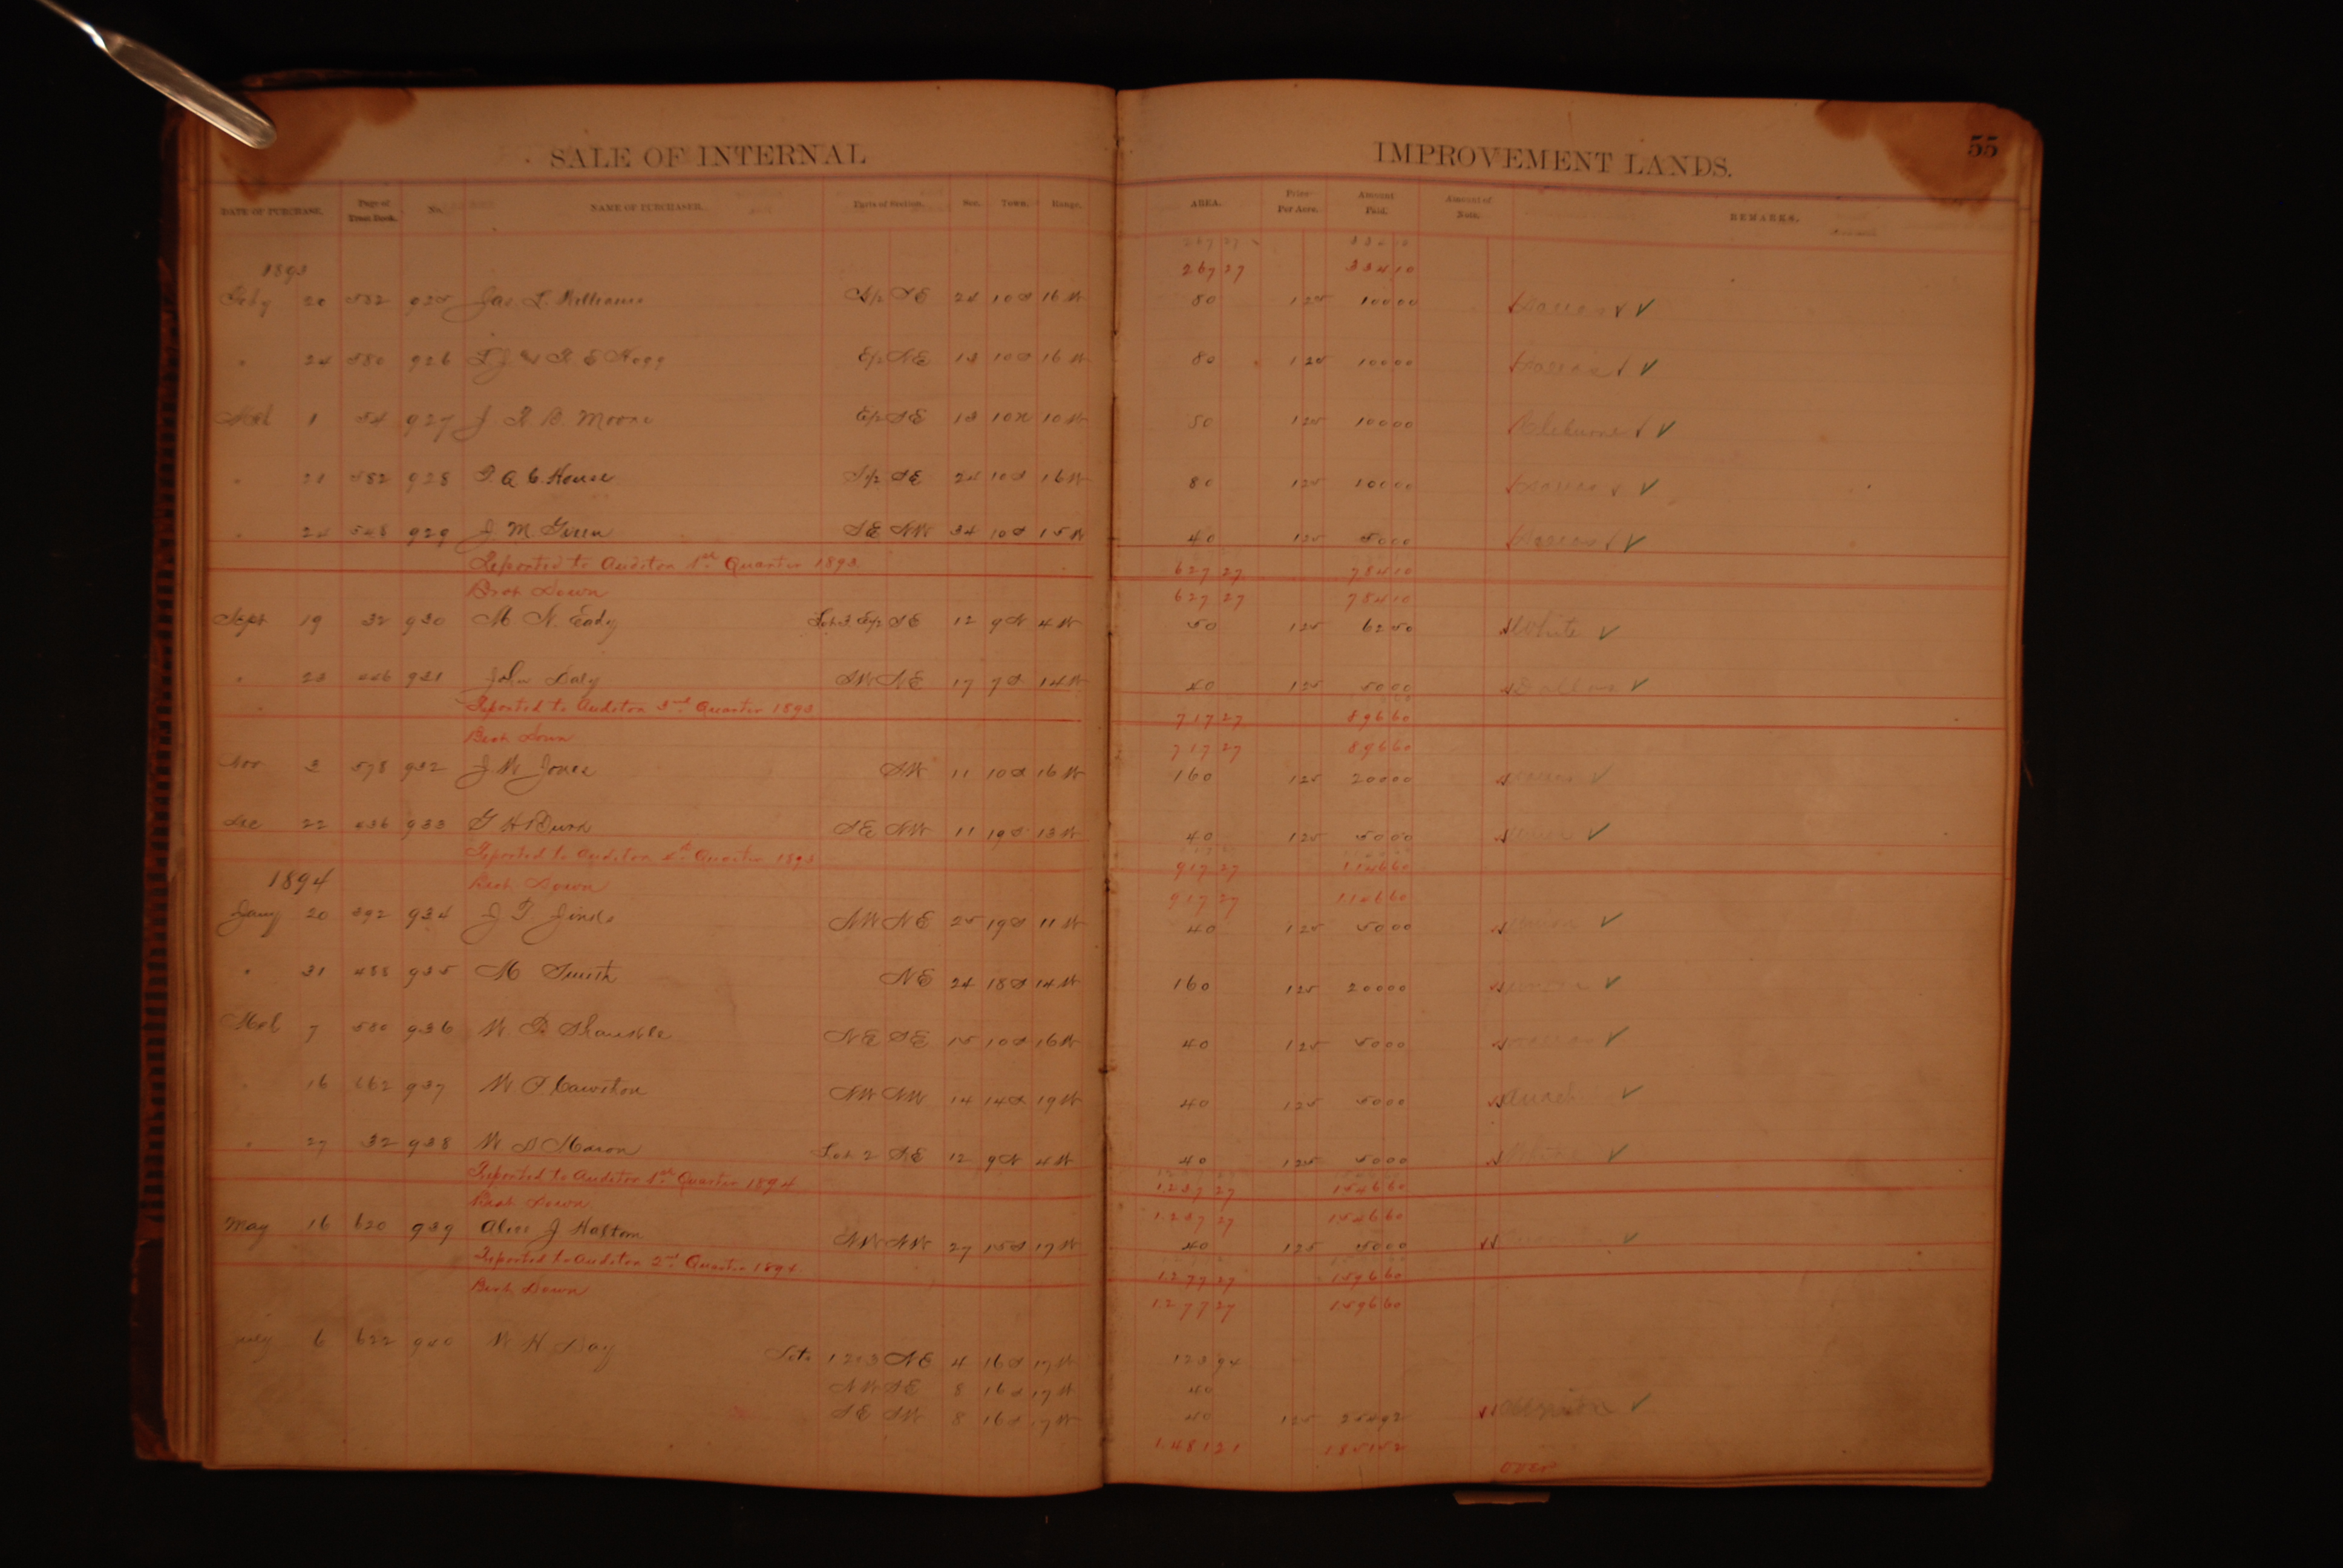 SALE OF INTERNAL IMPROVEMENT LANDS. 55
DATE OF PURCHASE. Page of Tract Book. No. NAME OF PURCHASER. Parts of Section. Sec. Town. Range. AREA. Price Per Acre. Amount Paid. Amount of Note. REMARKS.
267 27 334 10
1893 267 27 334 10
Feby 20 582 925 Jas. L. Williams N/2 SE 24 10 S 16 W 80 1 25 100 00 ✓
" 24 580 926 E/2 NE 13 10 S 16 W 80 1 25 100 00 ✓
Mch 1 54 927 J. R. B. Moore E/2 SE 13 10 N 10 W 80 1 25 100 00 Cleburne ✓
" 21 582 928 T. A. C. House S/2 SE 24 10 S 16 W 80 1 25 100 00 ✓
" 24 548 929 J. M. Green SE NW 34 10 S 15 W 40 1 25 50 00 ✓
Reported to Auditor 1st Quarter 1893 627 27 784 10
Brot Down 627 27 784 10
Sept 19 32 930 M. N. Eady Lot 3 E/2 SE 12 9 N 4 W 50 1 25 62 50 White ✓
" 23 446 931 John Daly SW NE 17 7 S 14 W 40 1 25 50 00 Dallas ✓
Reported to Auditor 3rd Quarter 1893 717 27 896 60
Brot Down 717 27 896 60
Nov 3 578 932 J. W. Jones SW 11 10 S 16 W 160 1 25 200 00 ✓
Dec 22 436 933 G H Dunn SE NW 11 19 S 13 W 40 1 25 50 00 Union ✓
Reported to Auditor 4th Quarter 1893 917 27 1146 60
1894 Brot Down 917 27 1146 60
Jany 20 392 934 J T Jinds NW NE 25 19 S 11 W 40 1 25 50 00 Union ✓
" 31 488 935 M Smith NE 24 18 S 14 W 160 1 25 200 00 Union ✓
Mch 7 580 936 W. P. NE SE 15 10 S 16 W 40 1 25 50 00 ✓
" 16 662 937 W P Cawthon NW NW 14 14 S 19 W 40 1 25 50 00 ✓
" 27 32 938 W D Mason Lot 2 SE 12 9 N 4 W 40 1 25 50 00 White ✓
Reported to Auditor 1st Quarter 1894 1237 27 1546 60
Brot Down 1237 27 1546 60
May 16 620 939 Alice J Haltom NW NW 27 15 S 17 W 40 1 25 50 00 ✓
Reported to Auditor 2nd Quarter 1894 1277 27 1596 60
Brot Down 1277 27 1596 60
July 6 622 940 W H Day Lots 1 2 & 3 NE 4 16 S 17 W 123 94
NW SE 8 16 S 17 W 40
SE SW 8 16 S 17 W 40 1 25 254 92 ✓
1481 21 1851 52
over